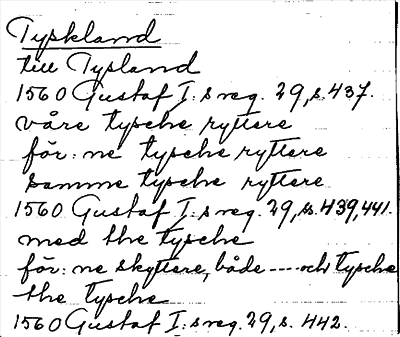 Tyskland
till Tysland
1560 Gustaf I:s reg. 29, s. 437.
våre tysche ryttere
för:ne tysche ryttere
samme tysche ryttere
1560 Gustaf I:s reg. 29, s. 439, 441.
med the tysche
för:ne skyttere, både ---- och tysche
the tysche
1560 Gustaf I:s reg. 29, s. 442.